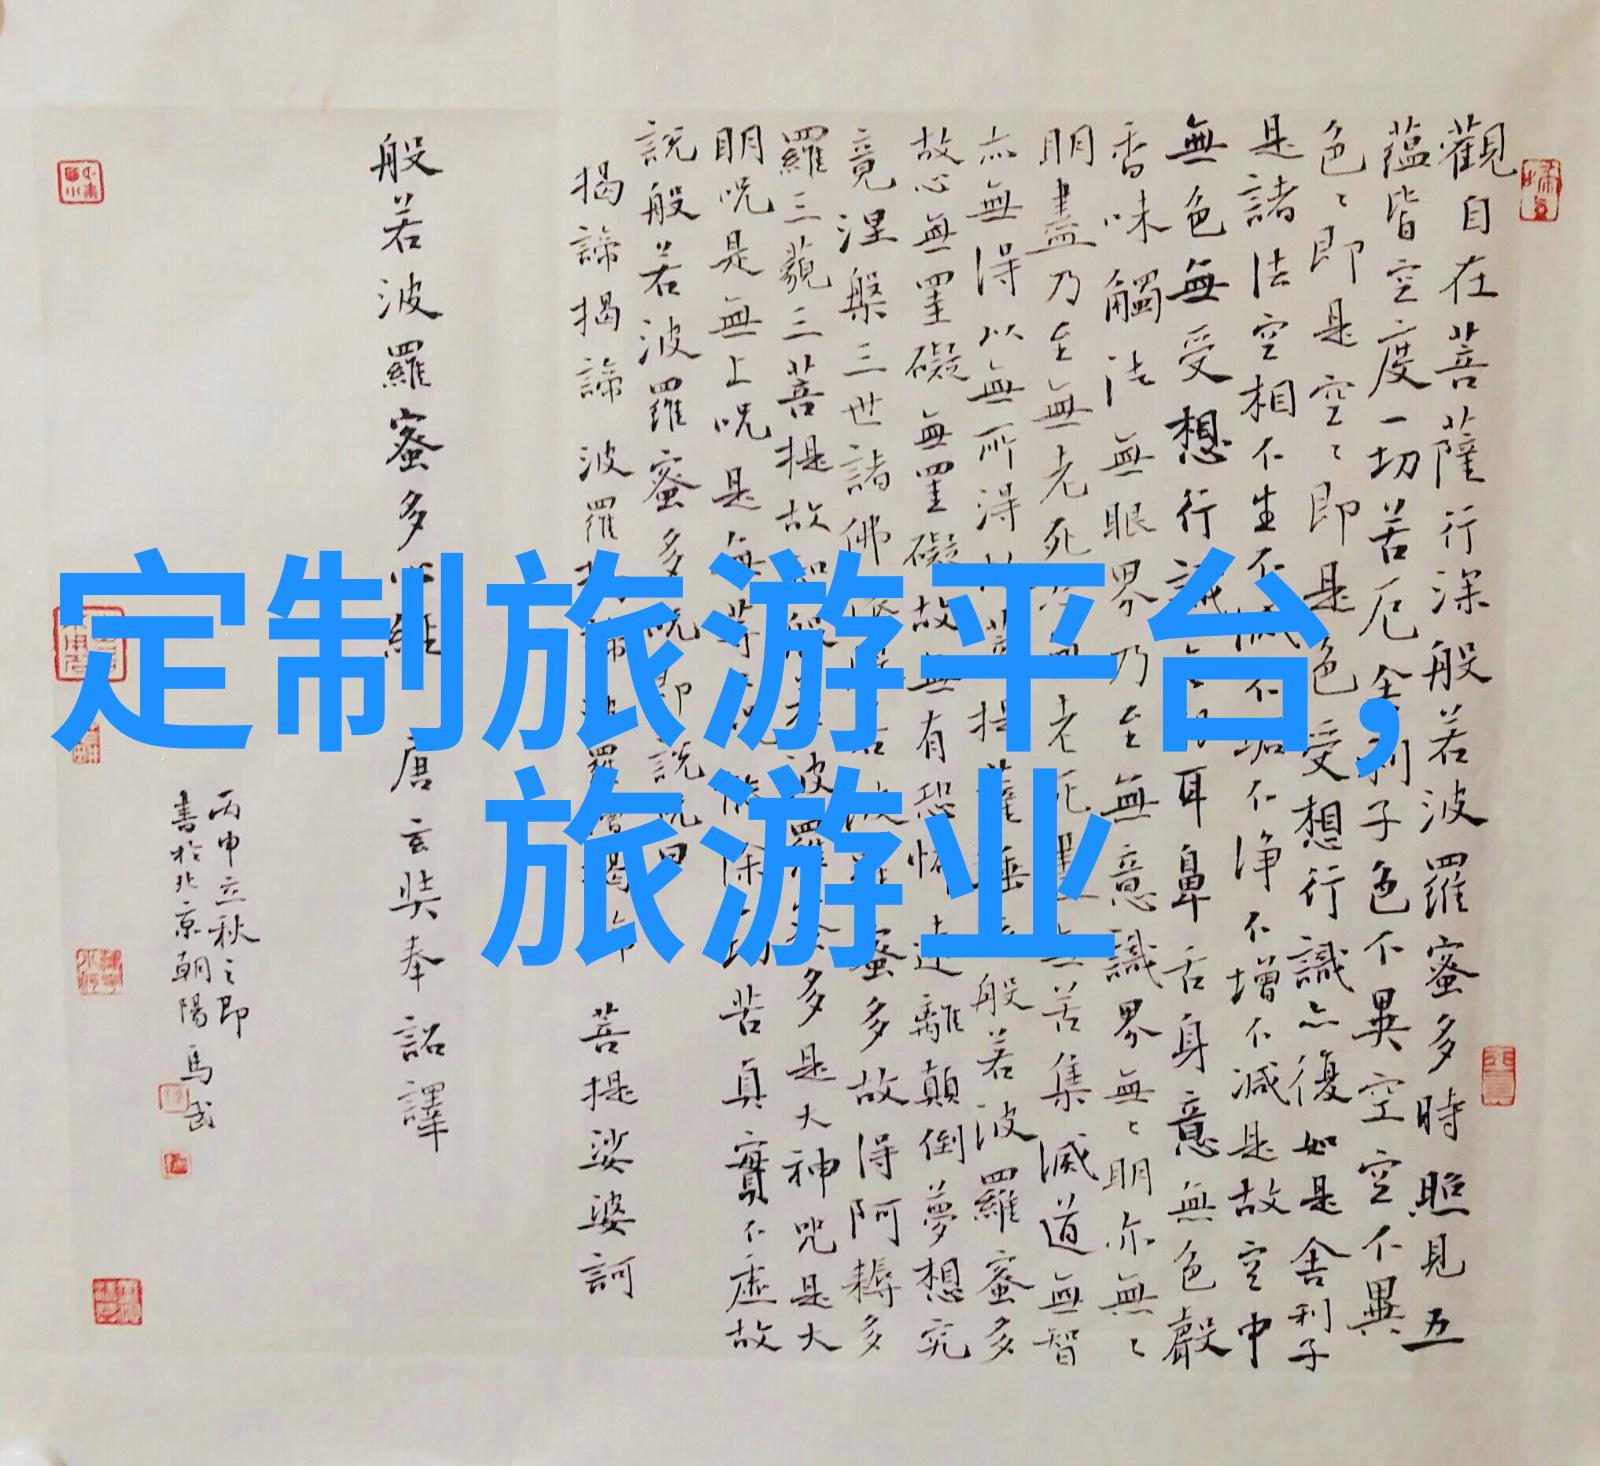 定制旅游平台,
旅游业
觀自在菩薩行深般若波羅蜜多時照見五
蘊皆空度一切苦厄舍利子色不異空空不異
色〻即是空〻即是色受想行識亦復如是舍利子
是諸法空相不生不滅不垢不淨不增不減是故空中
無色無受想行識耳鼻舌身意無色聲
香味觸法無眼界乃至無意識界無〻明亦無〻
明盡乃至無老死亦無老死盡無苦集滅道無智
亦無得以無所得故菩提薩埵般若波羅蜜多
故心無罣礙無罣礙故無有恐怖遠離顛倒夢想究
竟涅槃三世諸佛依般若波羅蜜多故得阿耨多
羅三藐三菩提故知般若波羅蜜多是大神咒是大
明呪是無上呪是無等等呪能除一切苦真實不虛故
說般若波羅蜜多呪即說呪曰
揭諦揭諦波羅揭諦波羅僧揭諦菩提娑婆訶
般若波羅蜜多心經 唐玄奘奉詔譯
丙申立秋之即
書於北京朝陽馬